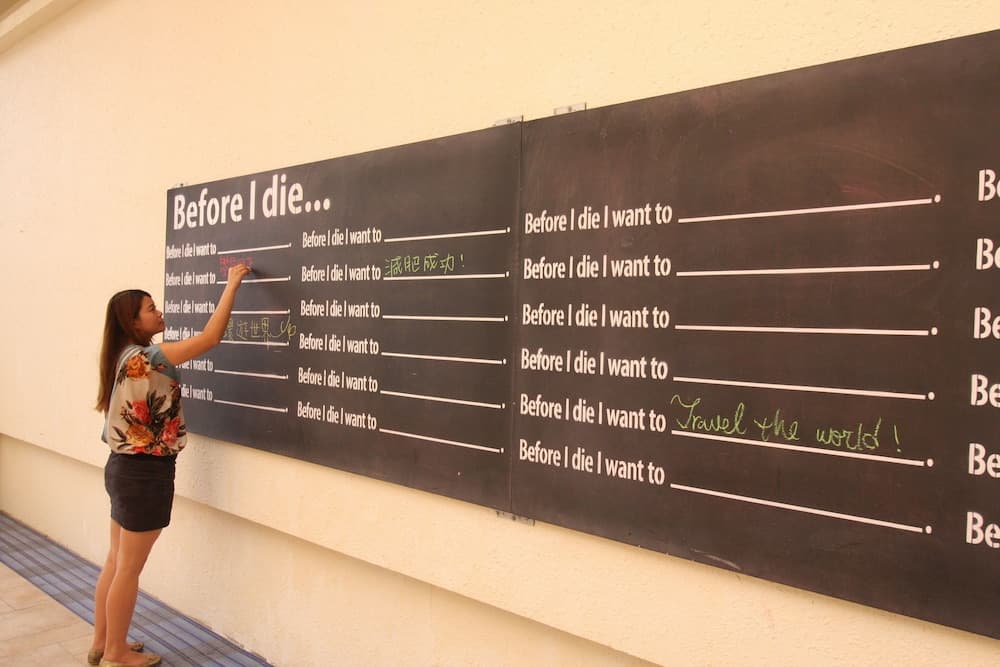 Before I die...
Before I die I want to
Before I die I want to
Before I die I want to
Before I die I want to 環遊世界
die I want to
die I want to
Before I die I want to
Before I die I want to 減肥成功!
Before I die I want to
Before I die I want to
Before I die I want to
Before I die I want to
Before I die I want to
Before I die I want to
Before I die I want to
Before I die I want to
Before I die I want to Travel the world!
Before I die I want to
Be
Be
Be
Be
Be
Be